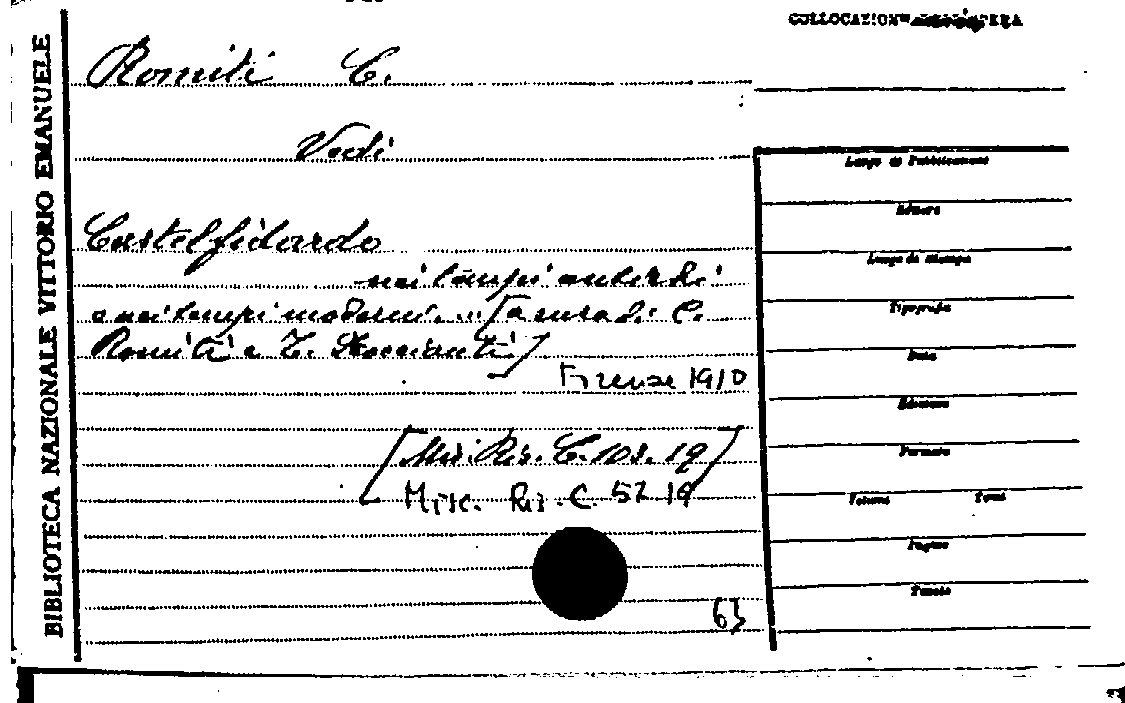 BIBLIOTECA NAZIONALE VITTORIO EMANUELE
COLLOCAZIONE
Romiti C.
Vedi
Castelfidardo
nei tempi antichi
e nei tempi moderni... [a cura di C.
Romiti e T. Moccianti]
Firenze 1910
[Mis. Ris. C. 108. 19]
Misc. Ris. C. 52 19
63
Luogo di Pubblicazione
Editore
Luogo di Stampa
Tipografia
Data
Edizione
Formato
Volume Tomi
Pagine
Tavole